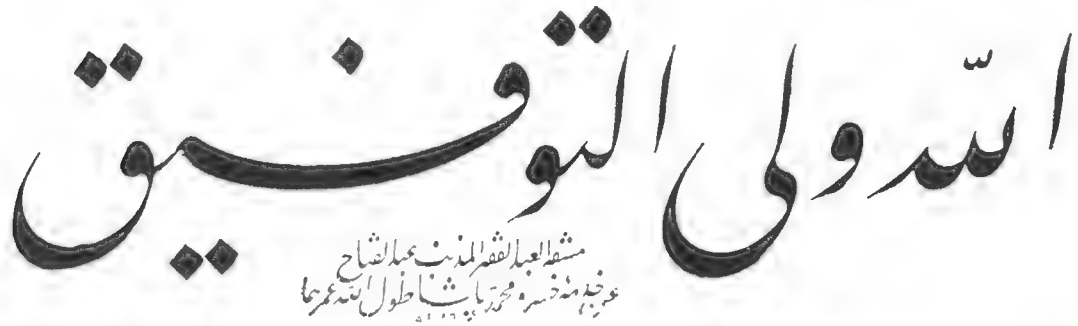 الله ولى التوفيق
مشقه العبد الفقير المذنب عبد الفتاح
عن خدمة خسرو محمد پاشا طول الله عمرهما